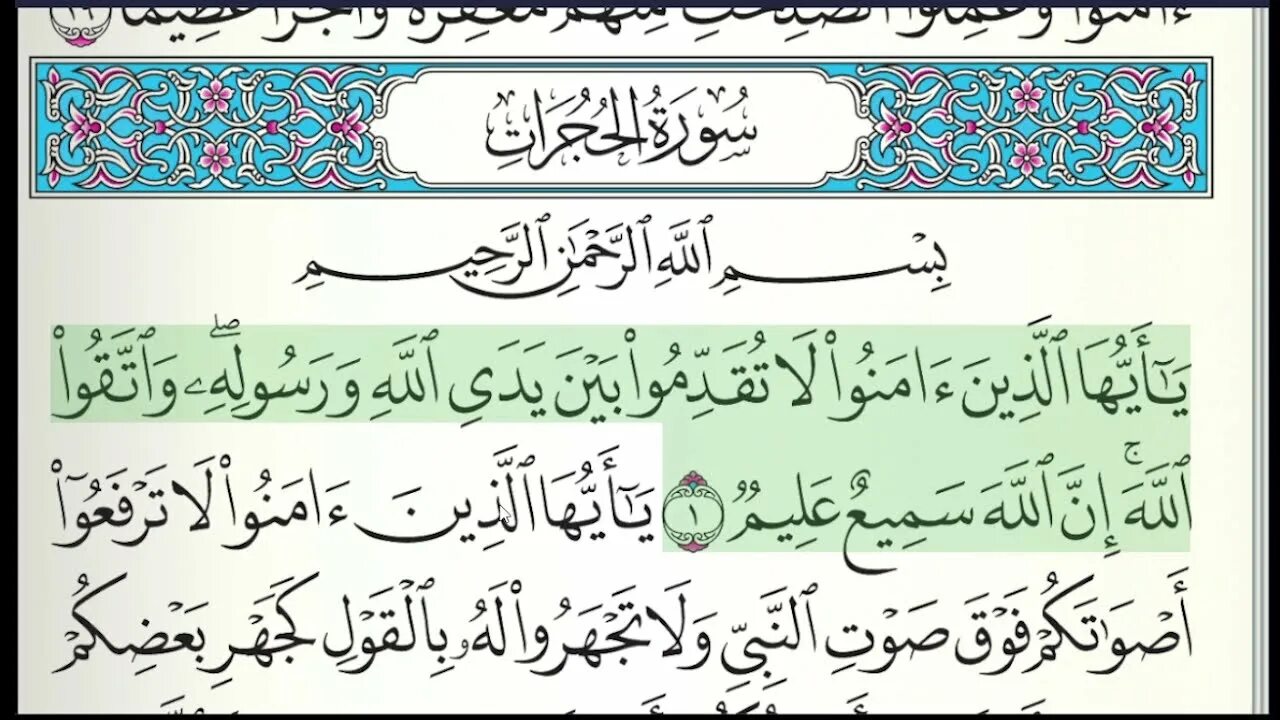 ءَامَنُوا۟ وَعَمِلُوا۟ ٱلصَّٰلِحَٰتِ مِنْهُم مَّغْفِرَةً وَأَجْرًا عَظِيمًۢا ٢٩
سُورَةُ الحُجُرَاتِ
بِسْمِ ٱللَّهِ ٱلرَّحْمَٰنِ ٱلرَّحِيمِ
يَٰٓأَيُّهَا ٱلَّذِينَ ءَامَنُوا۟ لَا تُقَدِّمُوا۟ بَيْنَ يَدَىِ ٱللَّهِ وَرَسُولِهِۦ ۖ وَٱتَّقُوا۟
ٱللَّهَ ۚ إِنَّ ٱللَّهَ سَمِيعٌ عَلِيمٌ ١ يَٰٓأَيُّهَا ٱلَّذِينَ ءَامَنُوا۟ لَا تَرْفَعُوٓا۟
أَصْوَٰتَكُمْ فَوْقَ صَوْتِ ٱلنَّبِىِّ وَلَا تَجْهَرُوا۟ لَهُۥ بِٱلْقَوْلِ كَجَهْرِ بَعْضِكُمْ